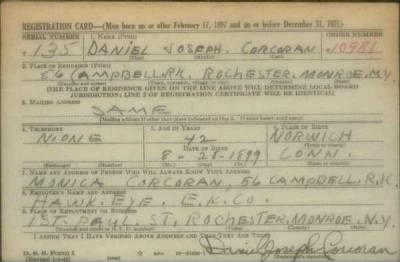 REGISTRATION CARD—(Men born on or after February 17, 1897 and on or before December 31, 1921)
SERIAL NUMBER 1. NAME (Print) ORDER NUMBER
135 DANIEL JOSEPH. CORCORAN 10981
(First) (Middle) (Last)
2. PLACE OF RESIDENCE (Print)
56 CAMPBELL.PK. ROCHESTER. MONROE. N.Y
(Number and street) (Town, township, village, or city) (County) (State)
[THE PLACE OF RESIDENCE GIVEN ON THE LINE ABOVE WILL DETERMINE LOCAL BOARD
JURISDICTION; LINE 2 OF REGISTRATION CERTIFICATE WILL BE IDENTICAL]
3. MAILING ADDRESS
SAME
[Mailing address if other than place indicated on line 2. If same insert word same]
4. TELEPHONE 5. AGE IN YEARS 6. PLACE OF BIRTH
NONE 42 NORWICH
DATE OF BIRTH (Town or county)
8-28-1899 CONN.
(Exchange) (Number) (Mo.) (Day) (Yr.) (State or country)
7. NAME AND ADDRESS OF PERSON WHO WILL ALWAYS KNOW YOUR ADDRESS
MONICA CORCORAN, 56 CAMPBELL. P.K.
8. EMPLOYER'S NAME AND ADDRESS
HAWK. EYE. E.K. CO.
9. PLACE OF EMPLOYMENT OR BUSINESS
ST. PAUL. ST. ROCHESTER. MONROE. N.Y.
(Number and street or R. F. D. number) (Town) (County) (State)
I AFFIRM THAT I HAVE VERIFIED ABOVE ANSWERS AND THAT THEY ARE TRUE.
D. S. S. FORM 1
Daniel Joseph Corcoran